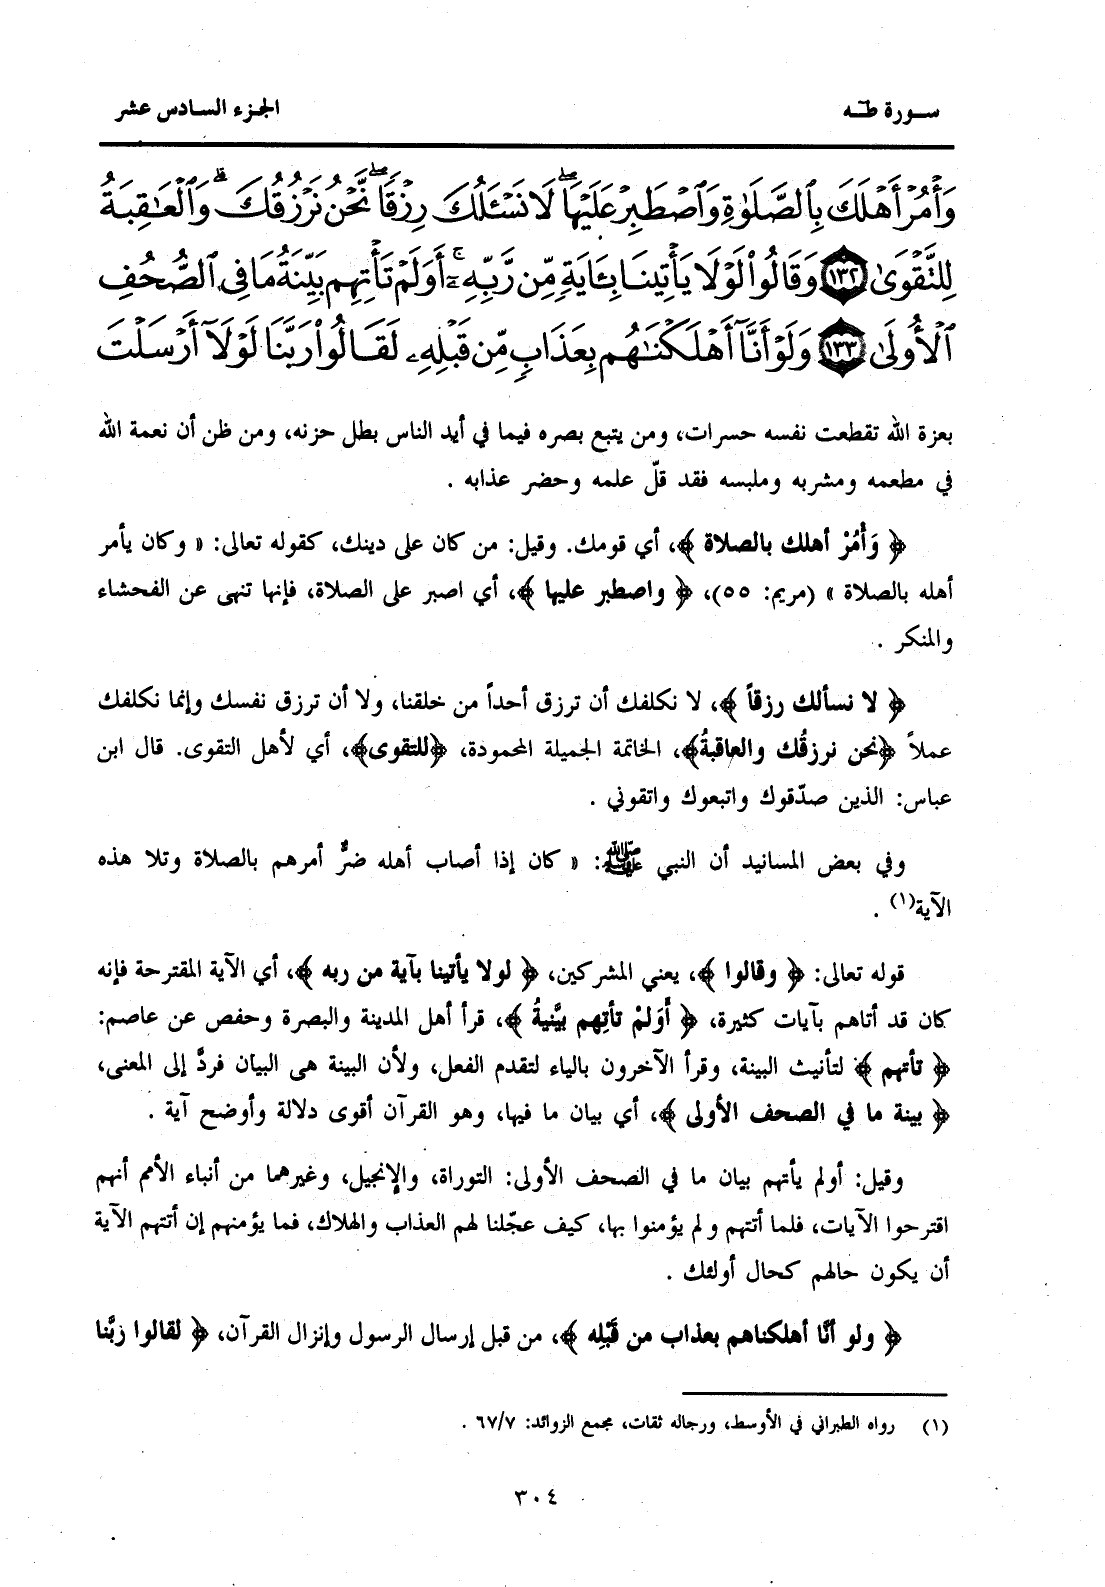 سورة طه
الجزء السادس عشر
وَأْمُرْ أَهْلَكَ بِٱلصَّلَوٰةِ وَٱصْطَبِرْ عَلَيْهَا ۖ لَا نَسْـَٔلُكَ رِزْقًا ۖ نَّحْنُ نَرْزُقُكَ ۗ وَٱلْعَـٰقِبَةُ
لِلتَّقْوَىٰ ﴿١٣٢﴾ وَقَالُوا۟ لَوْلَا يَأْتِينَا بِـَٔايَةٍ مِّن رَّبِّهِۦٓ ۚ أَوَلَمْ تَأْتِهِم بَيِّنَةُ مَا فِى ٱلصُّحُفِ
ٱلْأُولَىٰ ﴿١٣٣﴾ وَلَوْ أَنَّآ أَهْلَكْنَـٰهُم بِعَذَابٍ مِّن قَبْلِهِۦ لَقَالُوا۟ رَبَّنَا لَوْلَآ أَرْسَلْتَ
بعزة الله تقطعت نفسه حسرات، ومن يتبع بصره فيما في أيد الناس بطل حزنه، ومن ظن أن نعمة الله
في مطعمه ومشربه وملبسه فقد قلّ علمه وحضر عذابه .
﴿ وَأْمُرْ أهلك بالصلاة ﴾، أي قومك. وقيل: من كان على دينك، كقوله تعالى: « وكان يأمر
أهله بالصلاة » (مريم: ٥٥)، ﴿ واصطبر عليها ﴾، أي اصبر على الصلاة، فإنها تنهى عن الفحشاء
والمنكر .
﴿ لا نسألك رزقاً ﴾، لا نكلفك أن ترزق أحداً من خلقنا، ولا أن ترزق نفسك وإنما نكلفك
عملاً ﴿نحن نرزقُك والعاقبةُ﴾، الخاتمة الجميلة المحمودة، ﴿للتقوى﴾، أي لأهل التقوى. قال ابن
عباس: الذين صدّقوك واتبعوك واتقوني .
وفي بعض المسانيد أن النبي ﷺ: « كان إذا أصاب أهله ضرٌّ أمرهم بالصلاة وتلا هذه
الآية(١) .
قوله تعالى: ﴿ وقالوا ﴾، يعني المشركين، ﴿ لولا يأتينا بآية من ربه ﴾، أي الآية المقترحة فإنه
كان قد أتاهم بآيات كثيرة، ﴿ أَوَلمْ تأتِهم بيَّنيةُ ﴾، قرأ أهل المدينة والبصرة وحفص عن عاصم:
﴿ تأتهم ﴾ لتأنيث البينة، وقرأ الآخرون بالياء لتقدم الفعل، ولأن البينة هى البيان فردَّ إلى المعنى،
﴿ بينة ما في الصحف الأولى ﴾، أي بيان ما فيها، وهو القرآن أقوى دلالة وأوضح آية .
وقيل: أولم يأتهم بيان ما في الصحف الأولى: التوراة، والإنجيل، وغيرهما من أنباء الأمم أنهم
اقترحوا الآيات، فلما أتتهم ولم يؤمنوا بها، كيف عجّلنا لهم العذاب والهلاك، فما يؤمنهم إن أتتهم الآية
أن يكون حالهم كحال أولئك .
﴿ ولو أنَّا أهلكناهم بعذاب من قَبْلِه ﴾، من قبل إرسال الرسول وإنزال القرآن، ﴿ لقالوا ربَّنا
(١) رواه الطبراني في الأوسط، ورجاله ثقات، مجمع الزوائد: ٦٧/٧ .
٣٠٤